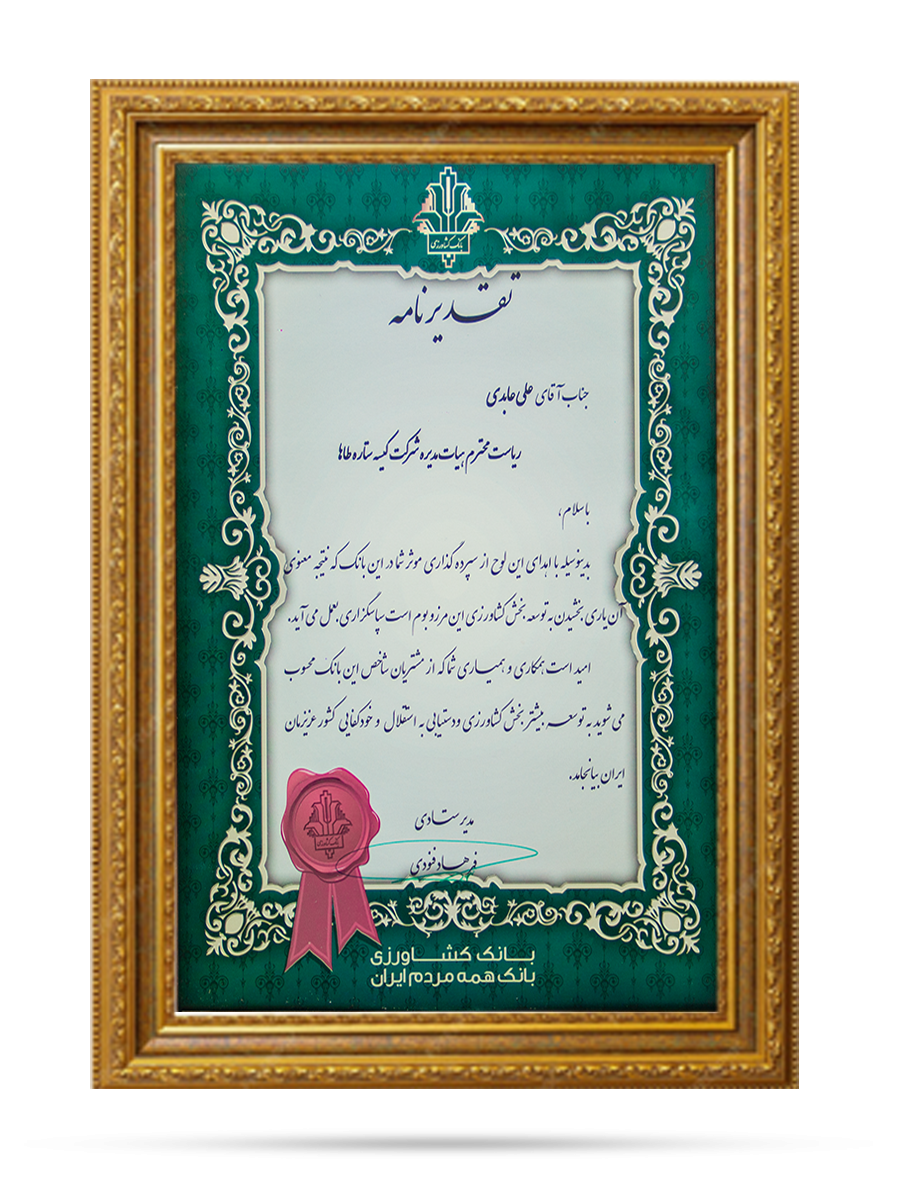 بانک کشاورزی
تقدیرنامه
جناب آقای علی عابدی
ریاست محترم هیات مدیره شرکت کیسه ستاره طاها
باسلام،
بدینوسیله با اهدای این لوح از سپرده گذاری موثر شما در این بانک که نتیجه معنوی
آن یاری بخشیدن به توسعه بخش کشاورزی این مرز و بوم است سپاسگزاری بعمل می آید.
امید است همکاری و همیاری شما که از مشتریان شاخص این بانک محسوب
می شوید به توسعه بیشتر بخش کشاورزی و دستیابی به استقلال و خودکفایی کشور عزیزمان
ایران بیانجامد.
مدیر ستادی
فرهاد فنودی
بانک کشاورزی
بانک کشاورزی
بانک همه مردم ایران